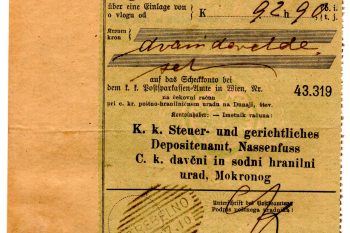 über eine Einlage von
o vlogu od
K 92 90
h.
v.
t. j.
Kronen
kron
dvaindevetdeset
auf das Scheckkonto bei
dem k. k. Postsparkassen-Amte in Wien, Nr.
43.319
na čekovni račun
pri c. kr. poštno-hranilničnem uradu na Dunaji, štev.
Kontoinhaber: — Imetnik računa:
K. k. Steuer- und gerichtliches
Depositenamt, Nassenfuss
C. k. davčni in sodni hranilni
urad, Mokronog
Unterschrift des
Podpis poštnega uradnika:
TREBELNO